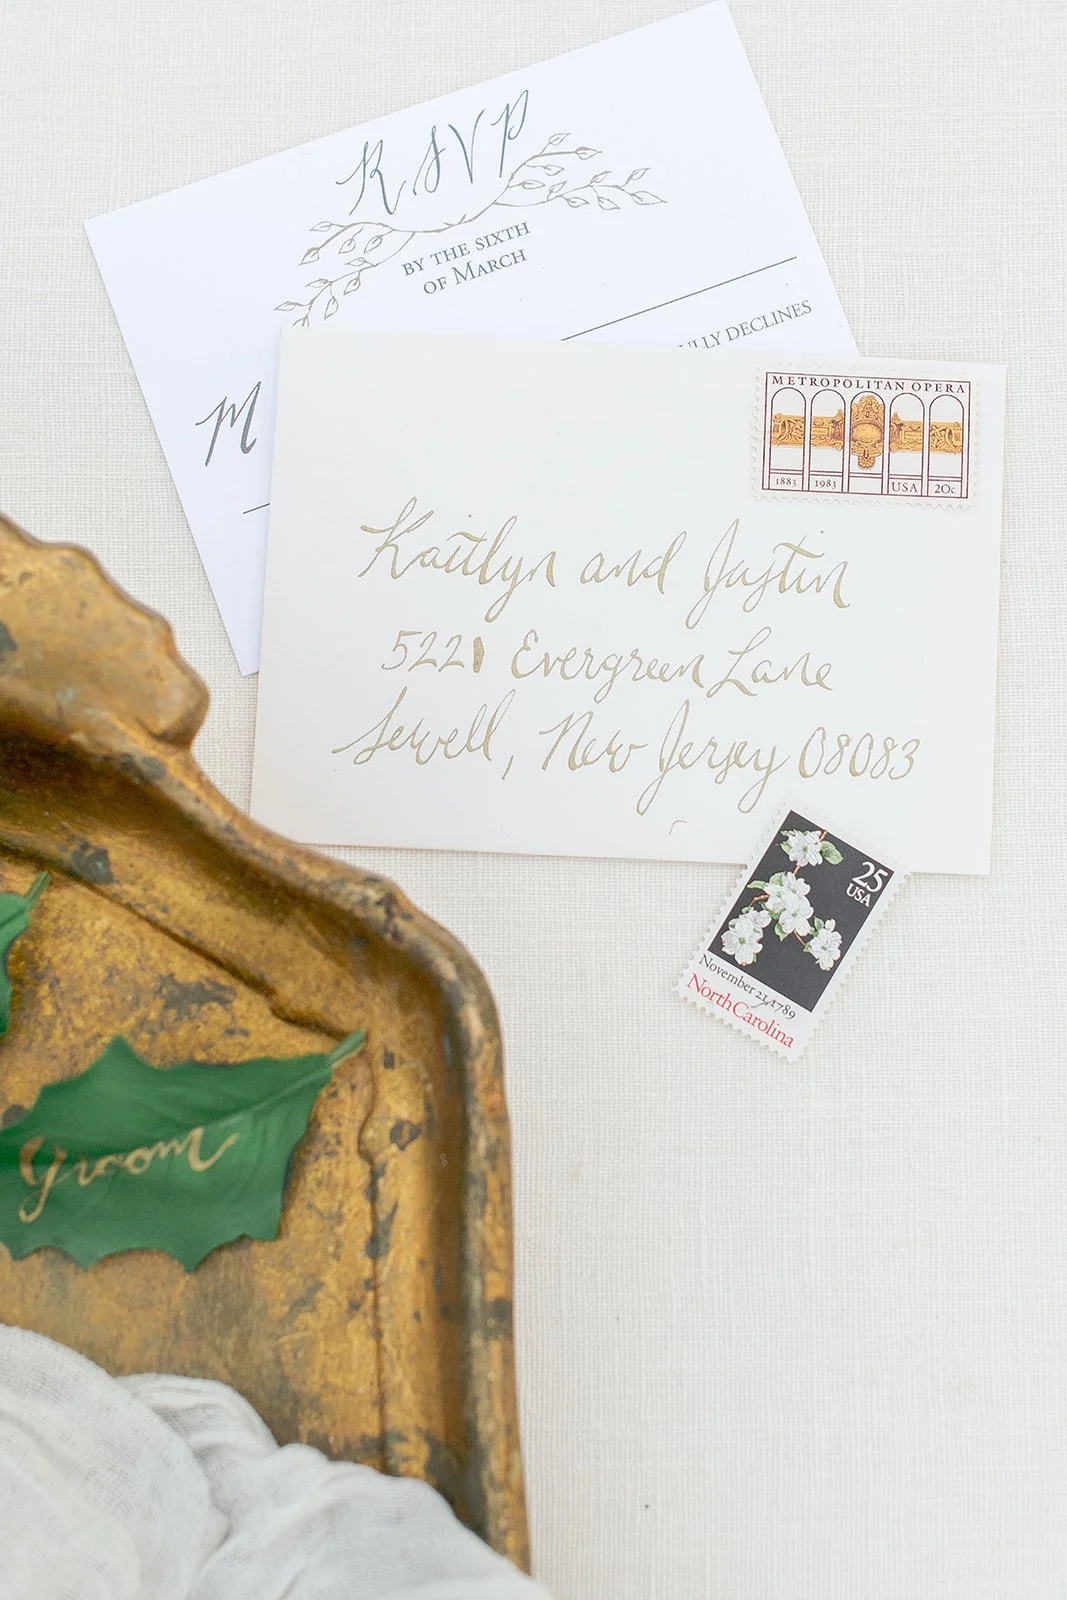 RSVP
BY THE SIXTH
OF MARCH
DECLINES
M
METROPOLITAN OPERA
1883 1983 USA 20c
Kaitlyn and Justin
5221 Evergreen Lane
Sewell, New Jersey 08083
25
USA
November 21, 1789
North Carolina
Groom